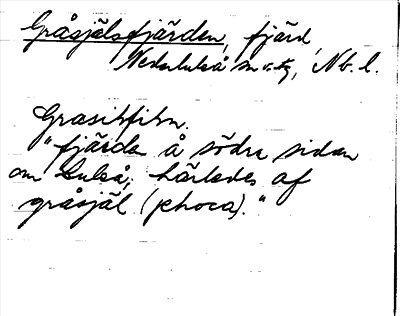 Gråsjälsfjärden, fjärd
Nederluleå sn o. tg, Nb. l.
Grasihfihn.
"fjärde å södra sidan
om Luleå; härledes af
gråsjäl (phoca)."